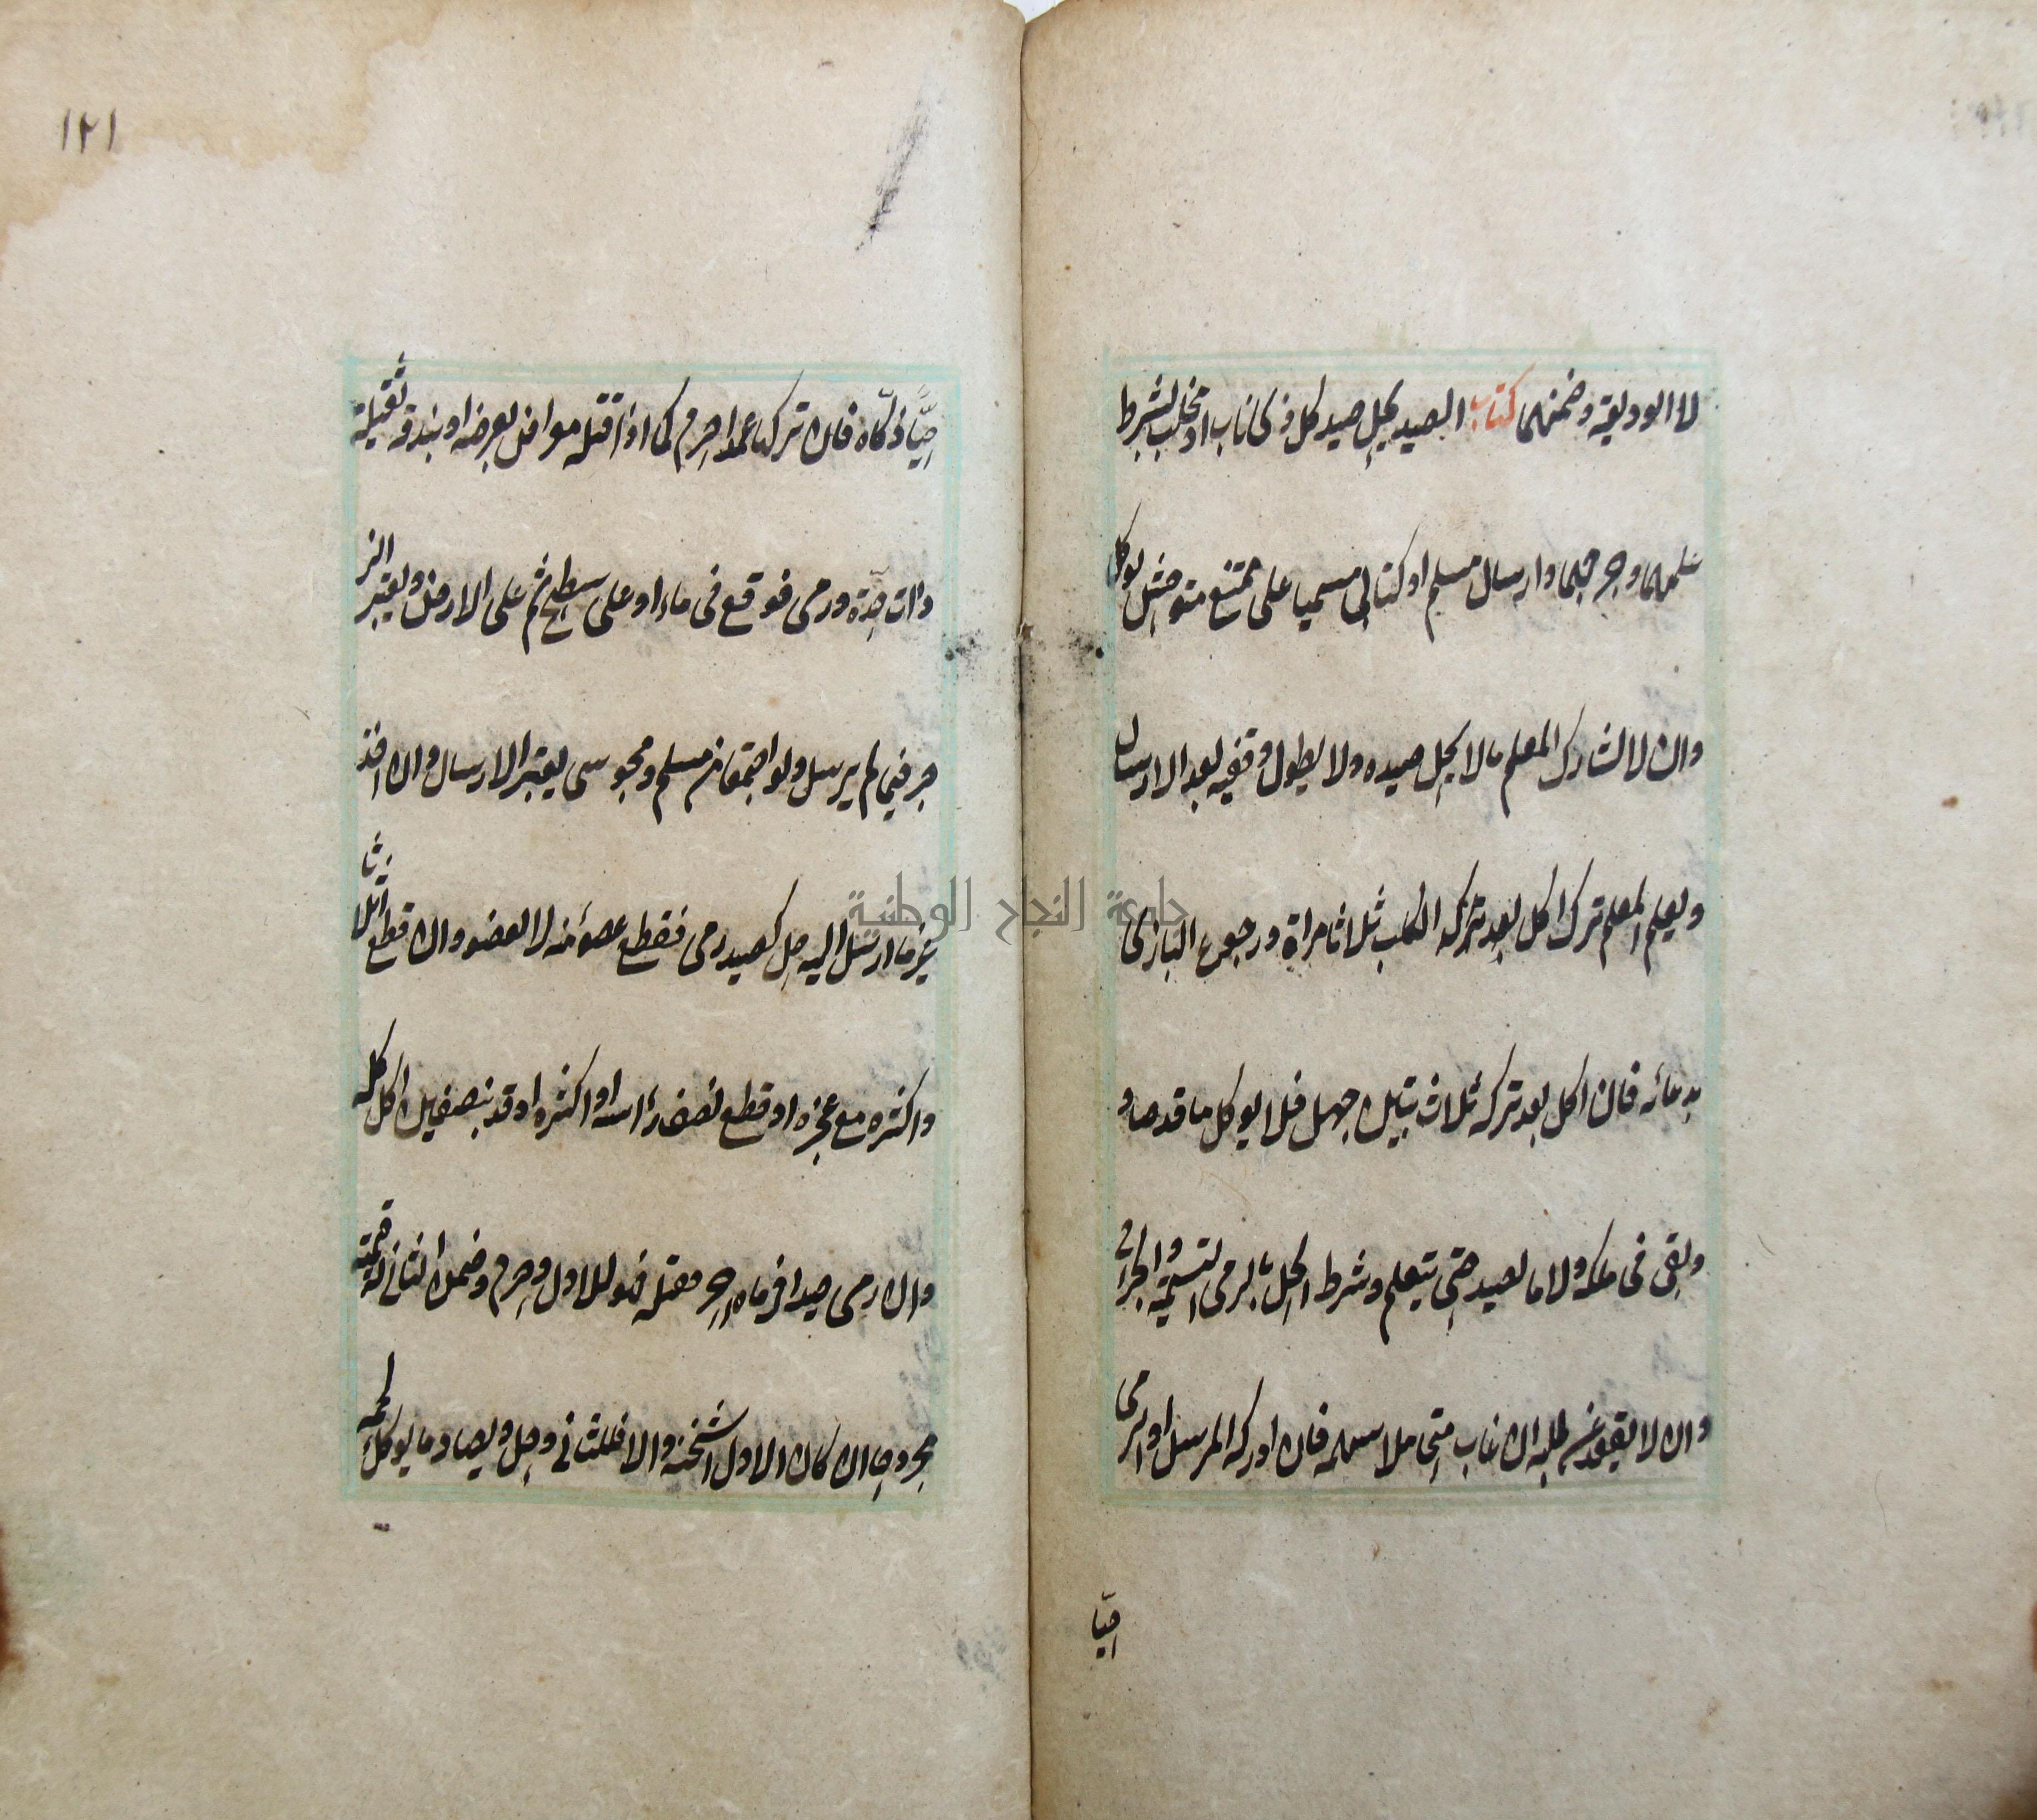 لا الوديعة وضمنهما كتاب الصيد يحل صيد كل ذى ناب او مخلب بشرط
علمهما وجرحهما وارسال مسلم او كتابى مسميا على ممتنع متوحش يوكل
وان لا تشارك المعلم ما لا يحل صيده ولا يطول وقفته بعد الارسال
ويعلم المعلم بترك اكل بعد تركه الكلب ثلاثا مراة ورجوع البازى
بدعائه فان اكل بعد تركه ثلاث تبين جهله فلا يوكل ما قد صاد
وبقى فى ملكه ولا ما يصيد حتى يتعلم وشرط الحل بالرمى التسمية والجرح
وان لا يقعد عن طلبه ان غاب متحاملا سهمه فان ادركه المرسل او الرمى
حيا
١٢١
حيًّا ذكّاه فان تركها عمدا حرم كما اذا قتله معراض بعرضه او بندقة ثقيلة
ذات حدّة ورمى فوقع فى ماء او على سطح ثم على الارض ويعتبر الز
جر فيما لم يرسل ولو اجتمعا من مسلم ومجوسى يعتبر الارسال وان اخذ
غير ما ارسل اليه حل كصيد رمى فقطع عضوء منه لا العضو وان قطع اثلاثا
واكثره مع عجزه او قطع نصف رأسه او اكثره او قد بنصفين اكل كله
وان رمى صيدا فرماه اخر فقتله فهو للاول وحرم وضمن الثانى له قيمته
مجروحا ان كان الاول اثخنه والا فللثانى وحل ويصاد ما يوكل لحمه
جامعة النجاح الوطنية